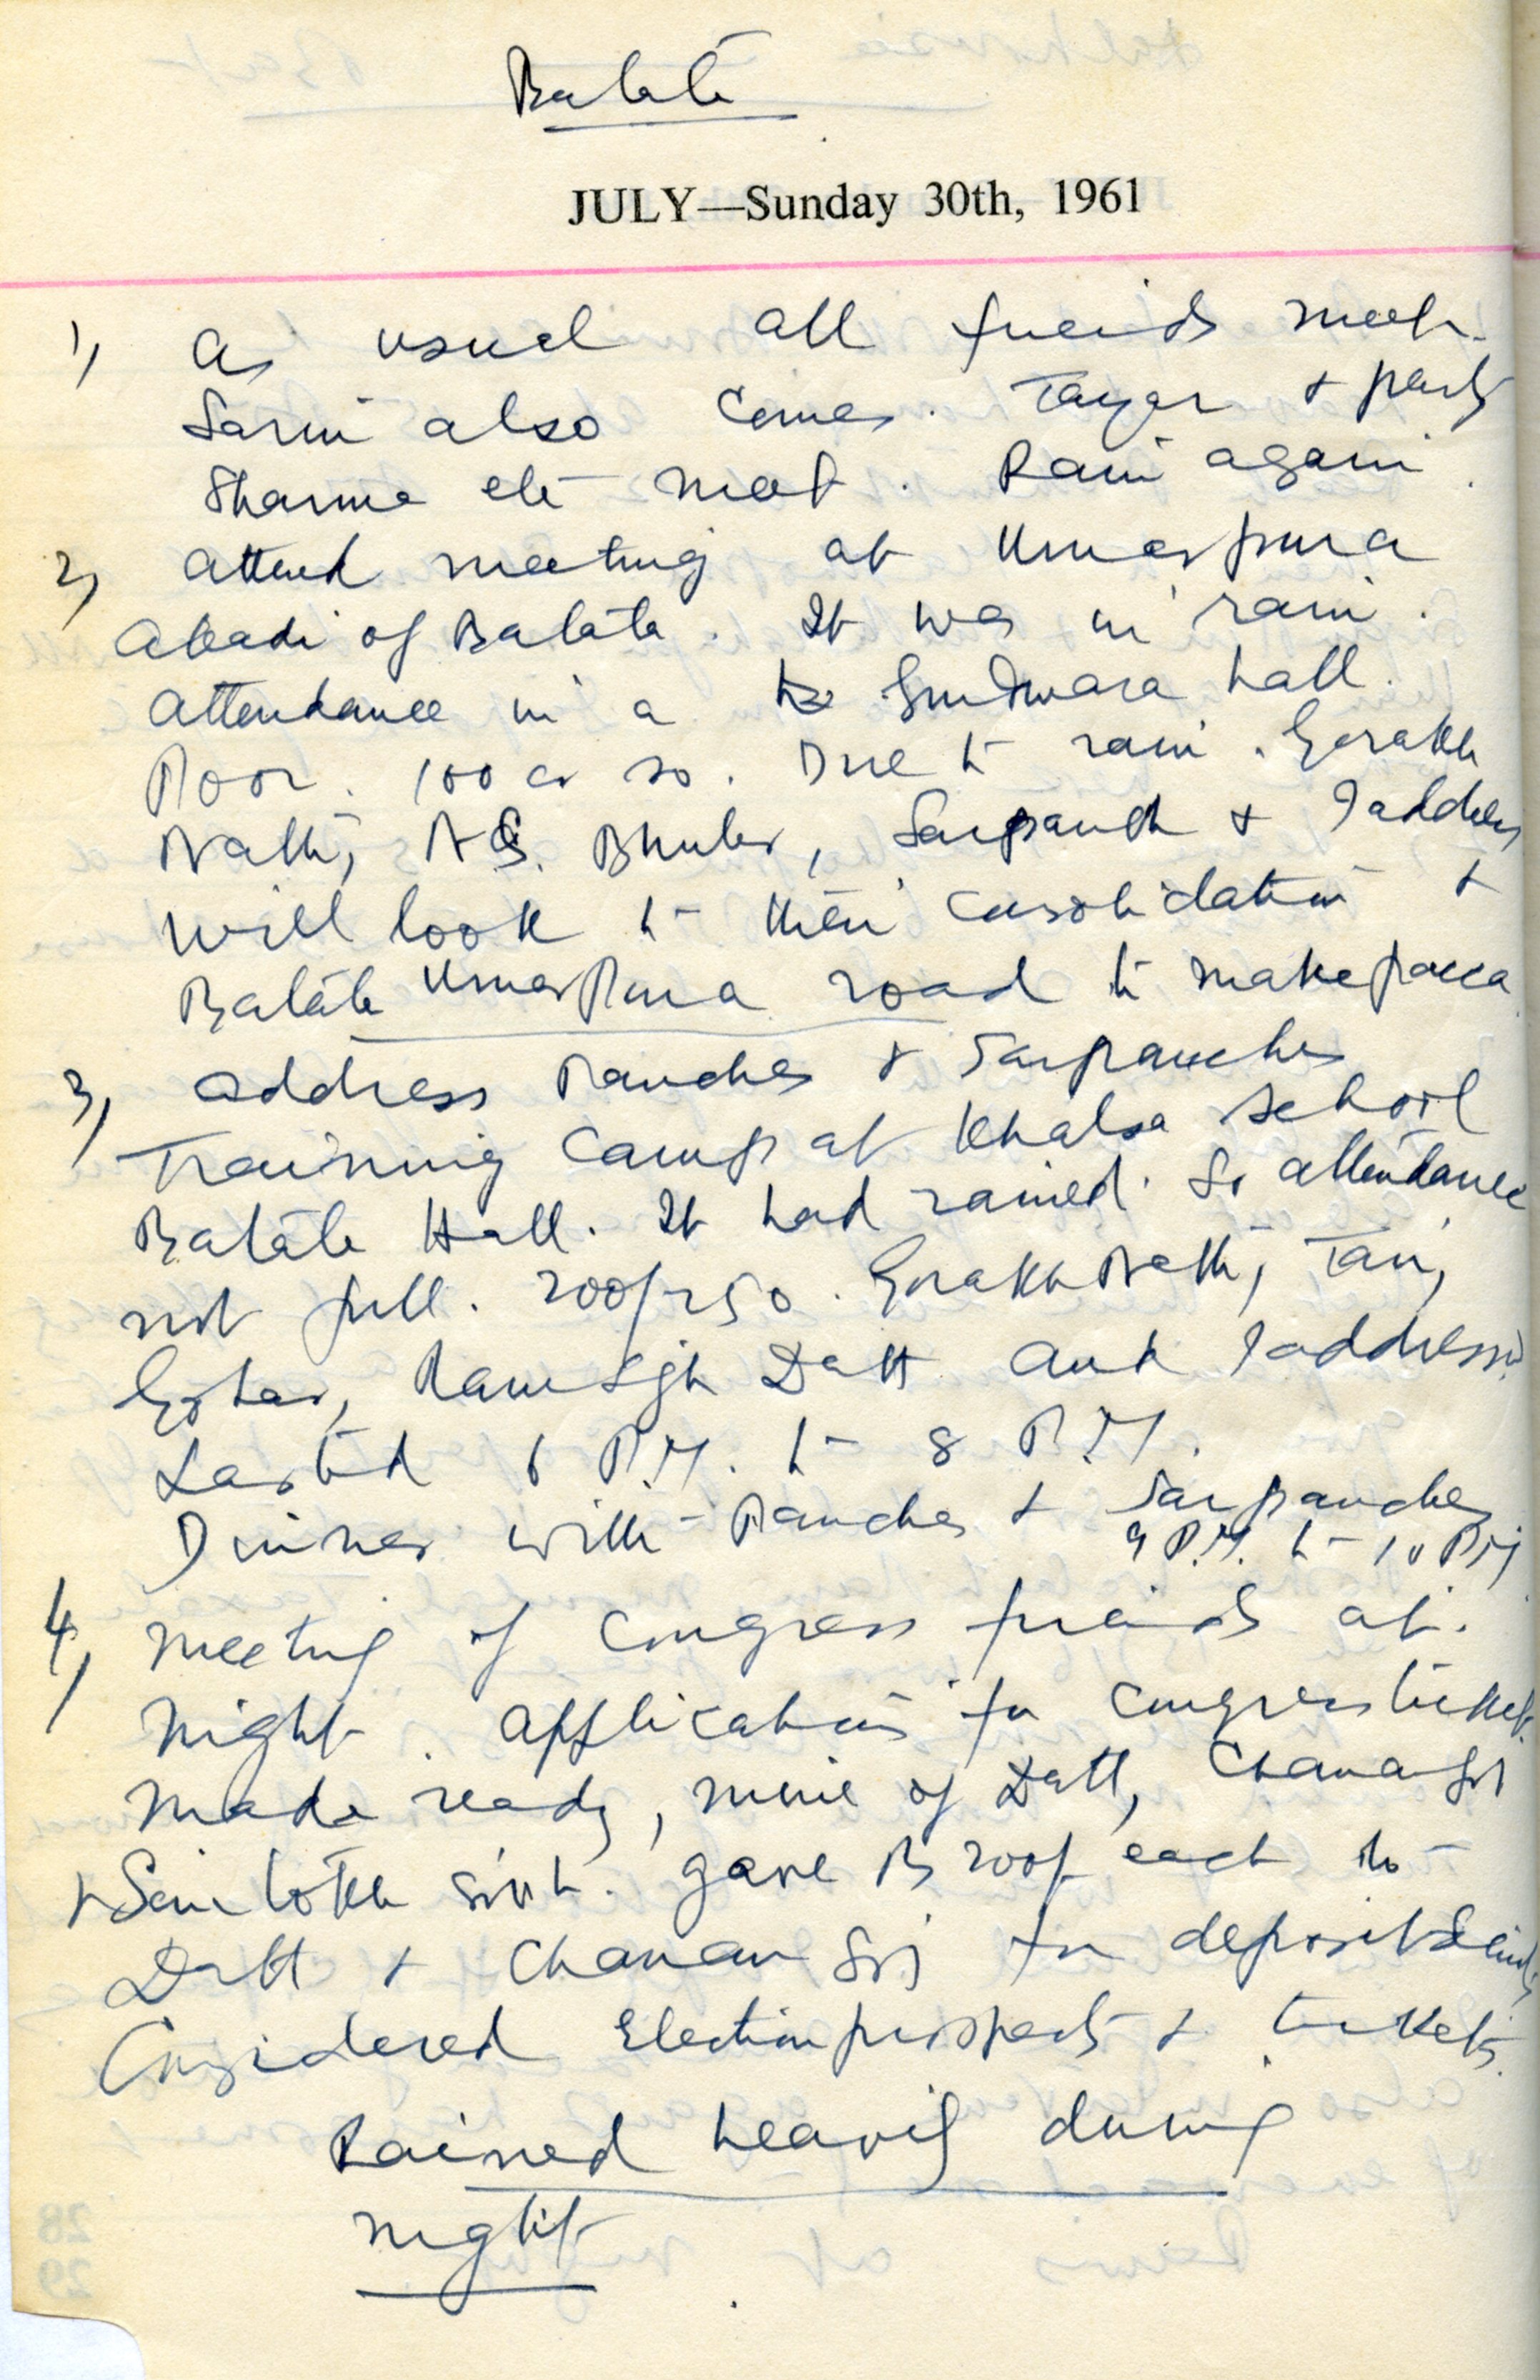 Batala
JULY—Sunday 30th, 1961
1, As usual all friends meet.
Saini also comes. Tayer & party
Sharma etc meet. Rain again.
2, Attend meeting at Umarpura
Abadi of Batala. It was in rain.
Attendance in a Gurdwara hall.
Poor. 100 or so. Due to rain. Gorakh
Nath, Sarpanch & I address
Will look to their consolidation &
Batala Umarpura road to make pacca
3, Address Panches & Sarpanches
Training Camp at Khalsa School
Batala Hall. It had rained. So attendance
not full. 200/250. Gorakh Nath,
Ram Sigh Datt and I addressed
Lasted 6 P.M. to 8 P.M.
Dinner with Panches & Sarpanches
9 P.M. to 10 PM
4, Meeting of Congress friends at
Night. Applications for Congress ticket
Made ready, mine of Datt, Chanan
& Santokh gave Rs 200/ each to
Datt & Chanan for deposit
Considered Election prospects & tickets.
Rained heavily during
night
28
29